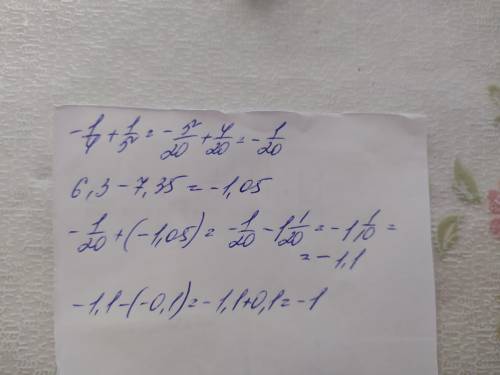 -1/4 + 1/5 = -5/20 + 4/20 = -1/20
6,3 - 7,35 = -1,05
-1/20 + (-1,05) = -1/20 - 1 1/20 = -1 1/10 =
= -1,1
-1,1 - (-0,1) = -1,1 + 0,1 = -1